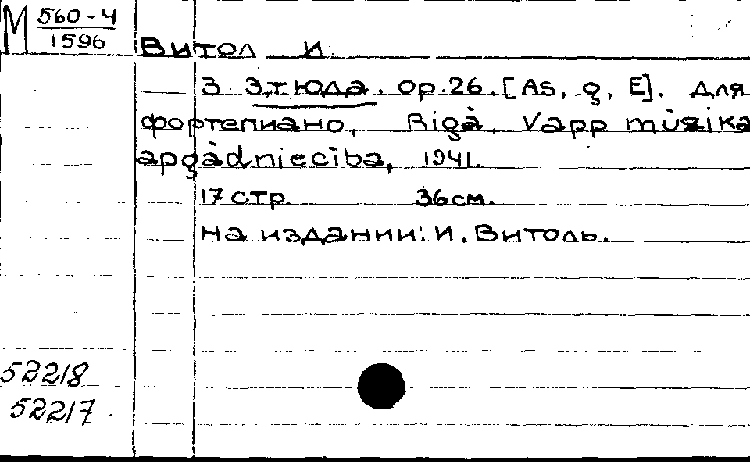 М 560-4
1596
Витол И.
3 Этюда. Op.26. [As, g, E]. Для
фортепиано, Rigà, Vapp mūzika
apgādniecība, 1941.
17 стр. 36 см.
На издании: И. Витоль.
52218
52217.